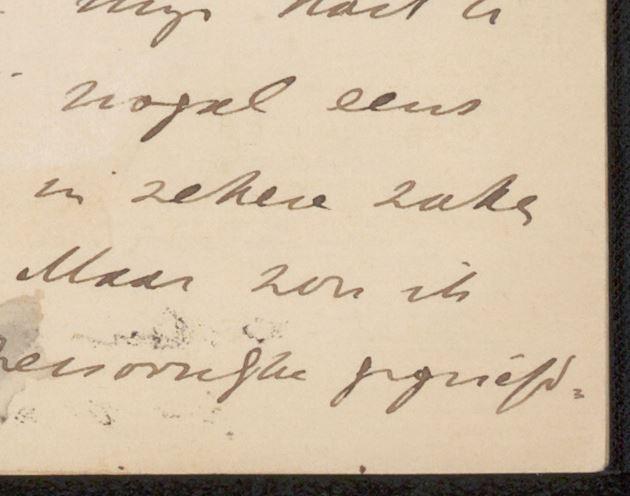 mijn hart is
nogal eens
in zekere zaken
Maar zou ik
persoonlijke gegriefd=